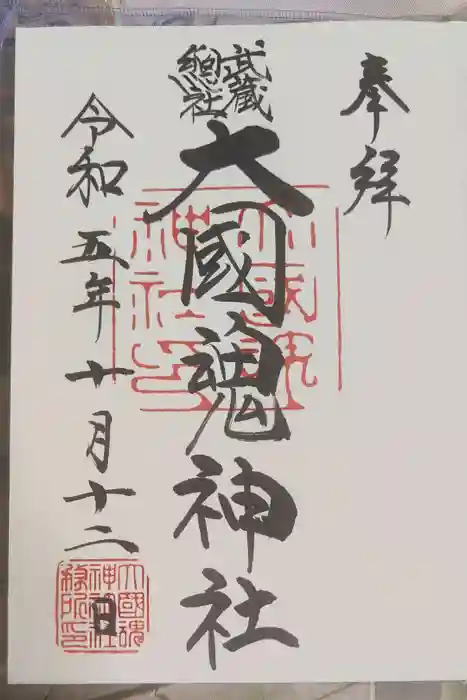 奉拝
武蔵
總社
大國魂神社
大國魂
神社印
令和五年十月十二日
大國魂
神社
務所印